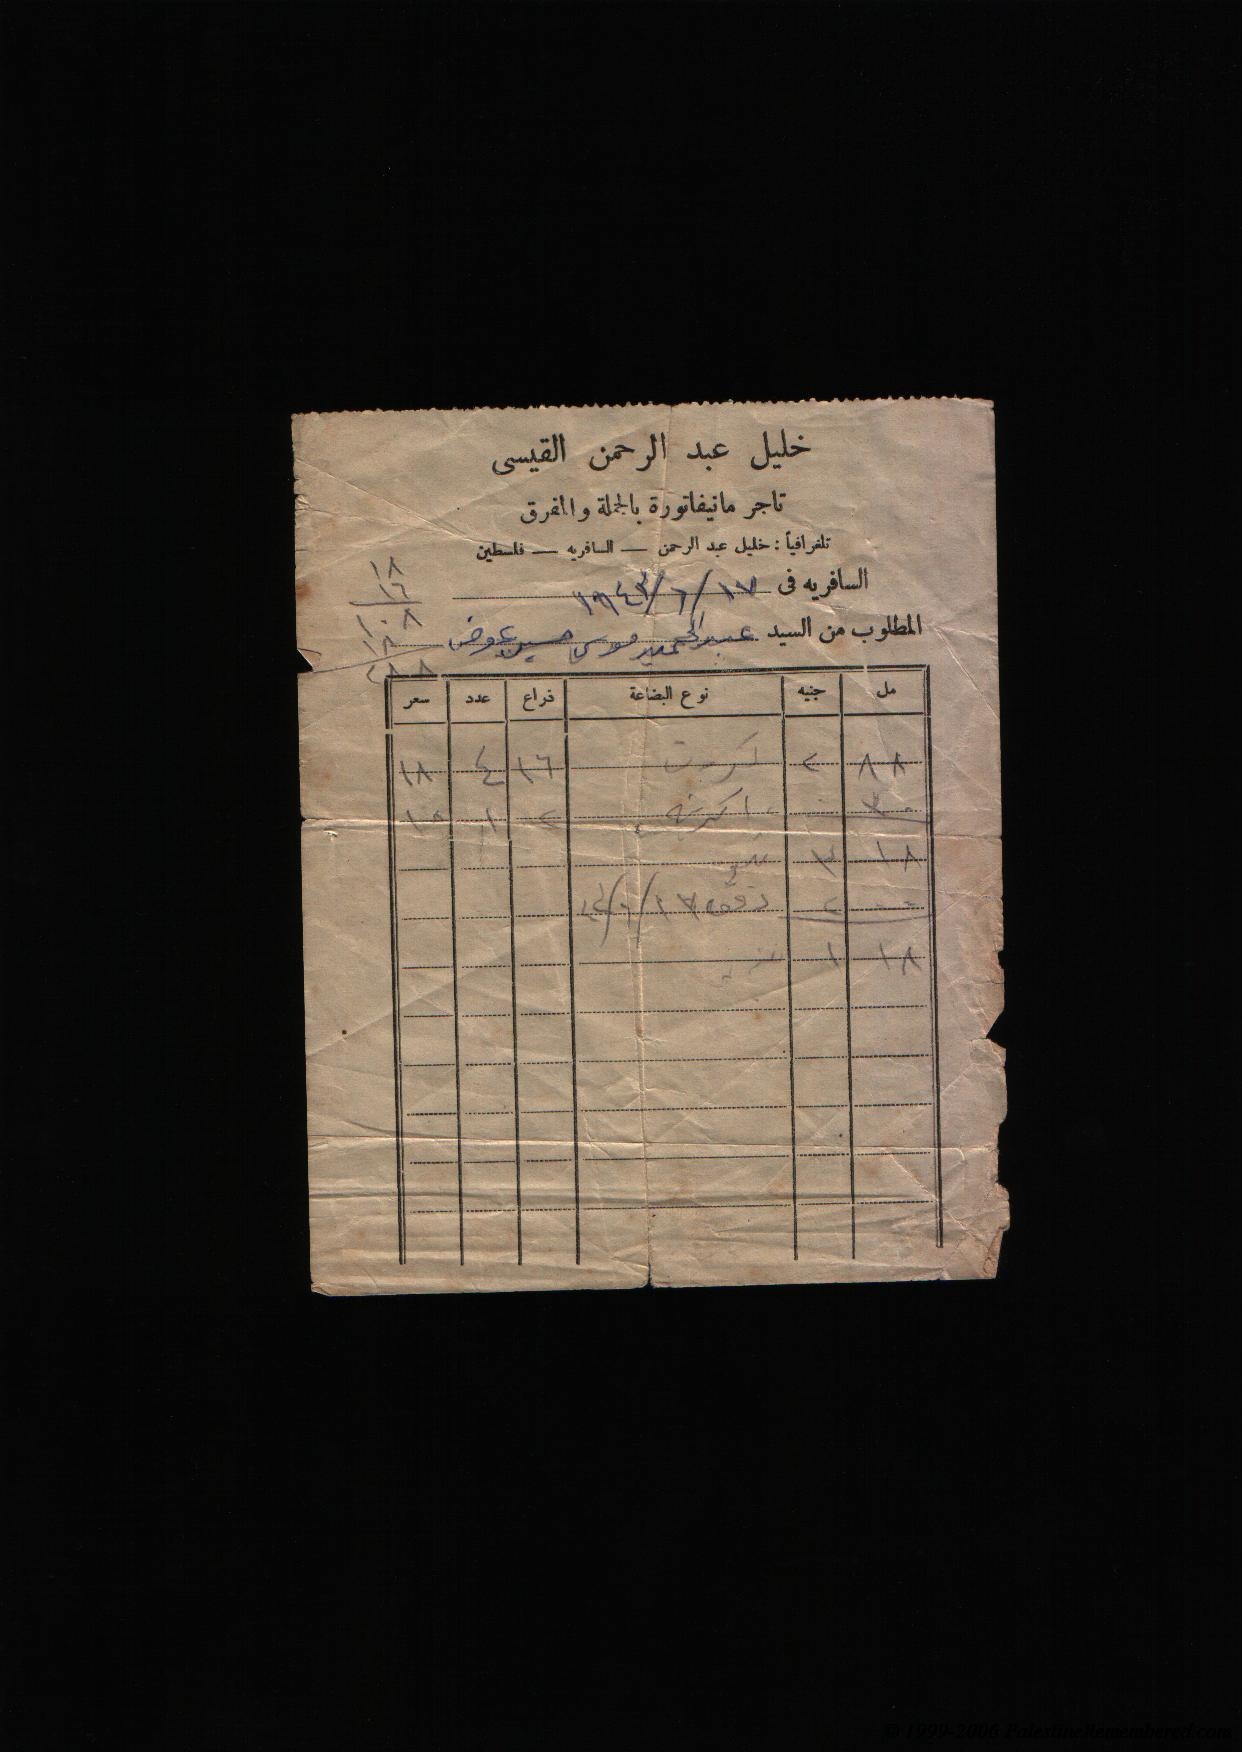 خليل عبد الرحمن القيسى
تاجر مانيفاتورة بالجملة والمفرق
تلغرافياً : خليل عبد الرحمن — السافريه — فلسطين
السافريه فى ١٧/٦/١٩٤٣
المطلوب من السيد عبد الحميد موسى حسين عوض
١٨
١٦
١٠٨
١٨
٢٨٨
مل جنيه نوع البضاعة ذراع عدد سعر
٨٨ ٢ ١٦ ٤ ١٨
٣٠ ٢ ١ ١٥
١٨ ٣
٠٠ ٢ دفعه ١٧/٦/٤٣
١٨ ١
© 1999-2006 PalestineRemembered.com